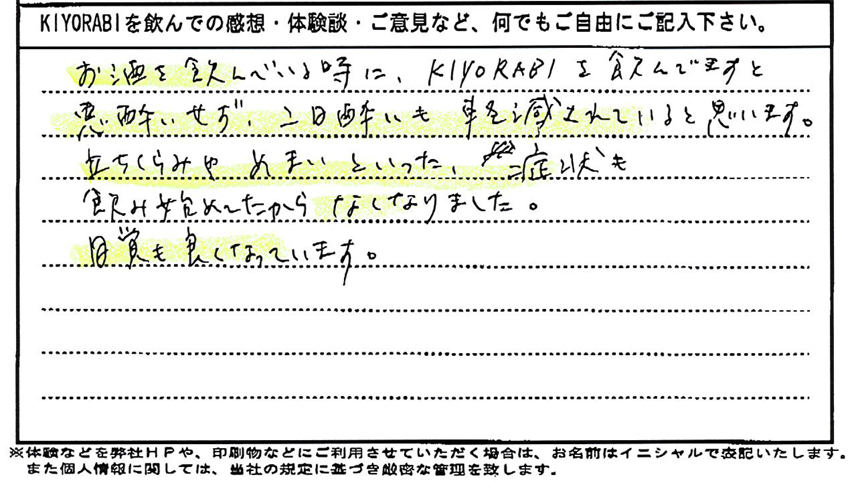 KIYORABIを飲んでの感想・体験談・ご意見など、何でもご自由にご記入下さい。
お酒を飲んでいる時に、KIYORABIを飲んでますと
悪酔いせず、二日酔いも軽減されていると思います。
立ちくらみやめまいといった、症状も
飲み始めてたから なくなりました。
目覚も良くなっています。
※体験などを弊社HPや、印刷物などにご利用させていただく場合は、お名前はイニシャルで表記いたします。
また個人情報に関しては、当社の規定に基づき厳密な管理を致します。